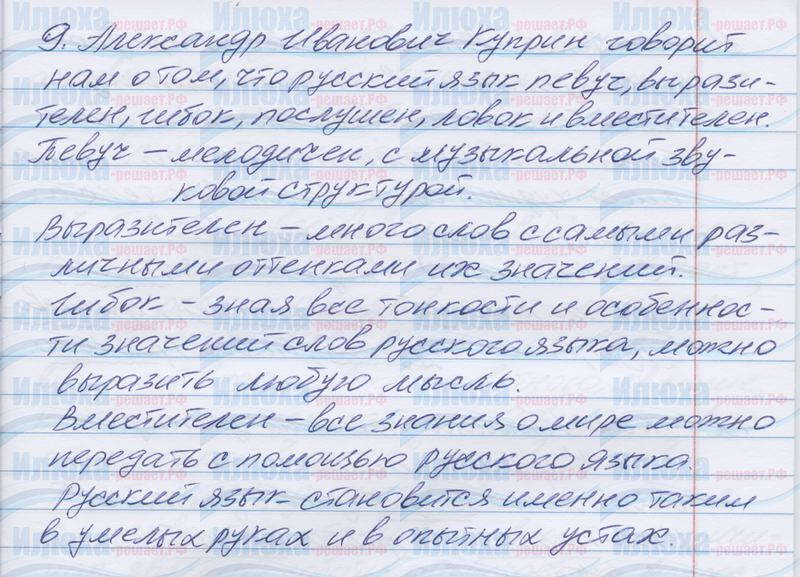 9. Александр Иванович Куприн говорит
нам о том, что русский язык певуч, вырази-
телен, гибок, послушен, ловок и вместителен.
Певуч – мелодичен, с музыкальной зву-
ковой структурой.
Выразителен – много слов с самыми раз-
личными оттенками их значений.
Гибок – зная все тонкости и особеннос-
ти значений слов русского языка, можно
выразить любую мысль.
Вместителен – все знания о мире можно
передать с помощью русского языка.
Русский язык становится именно таким
в умелых руках и в опытных устах.